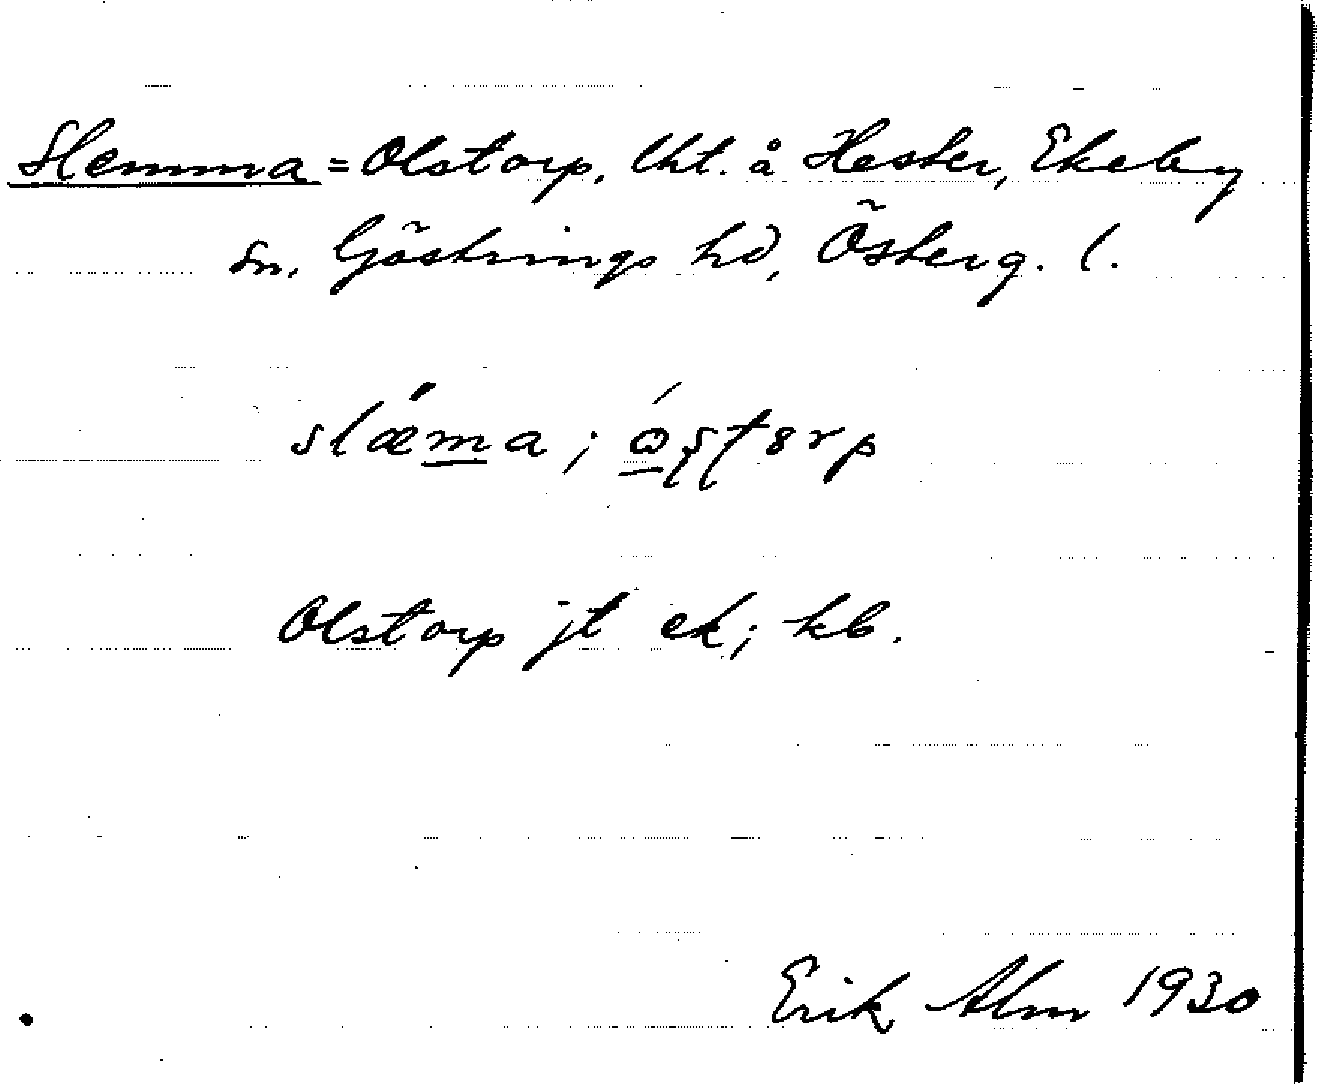 Slemma = Olstorp, lht. å Hester, Ekeby
sn. Göstrings hd, Österg. l.
slǽma; ó̱ʂʈɵrp
Olstorp jt ek; kb.
Erik Alm 1930